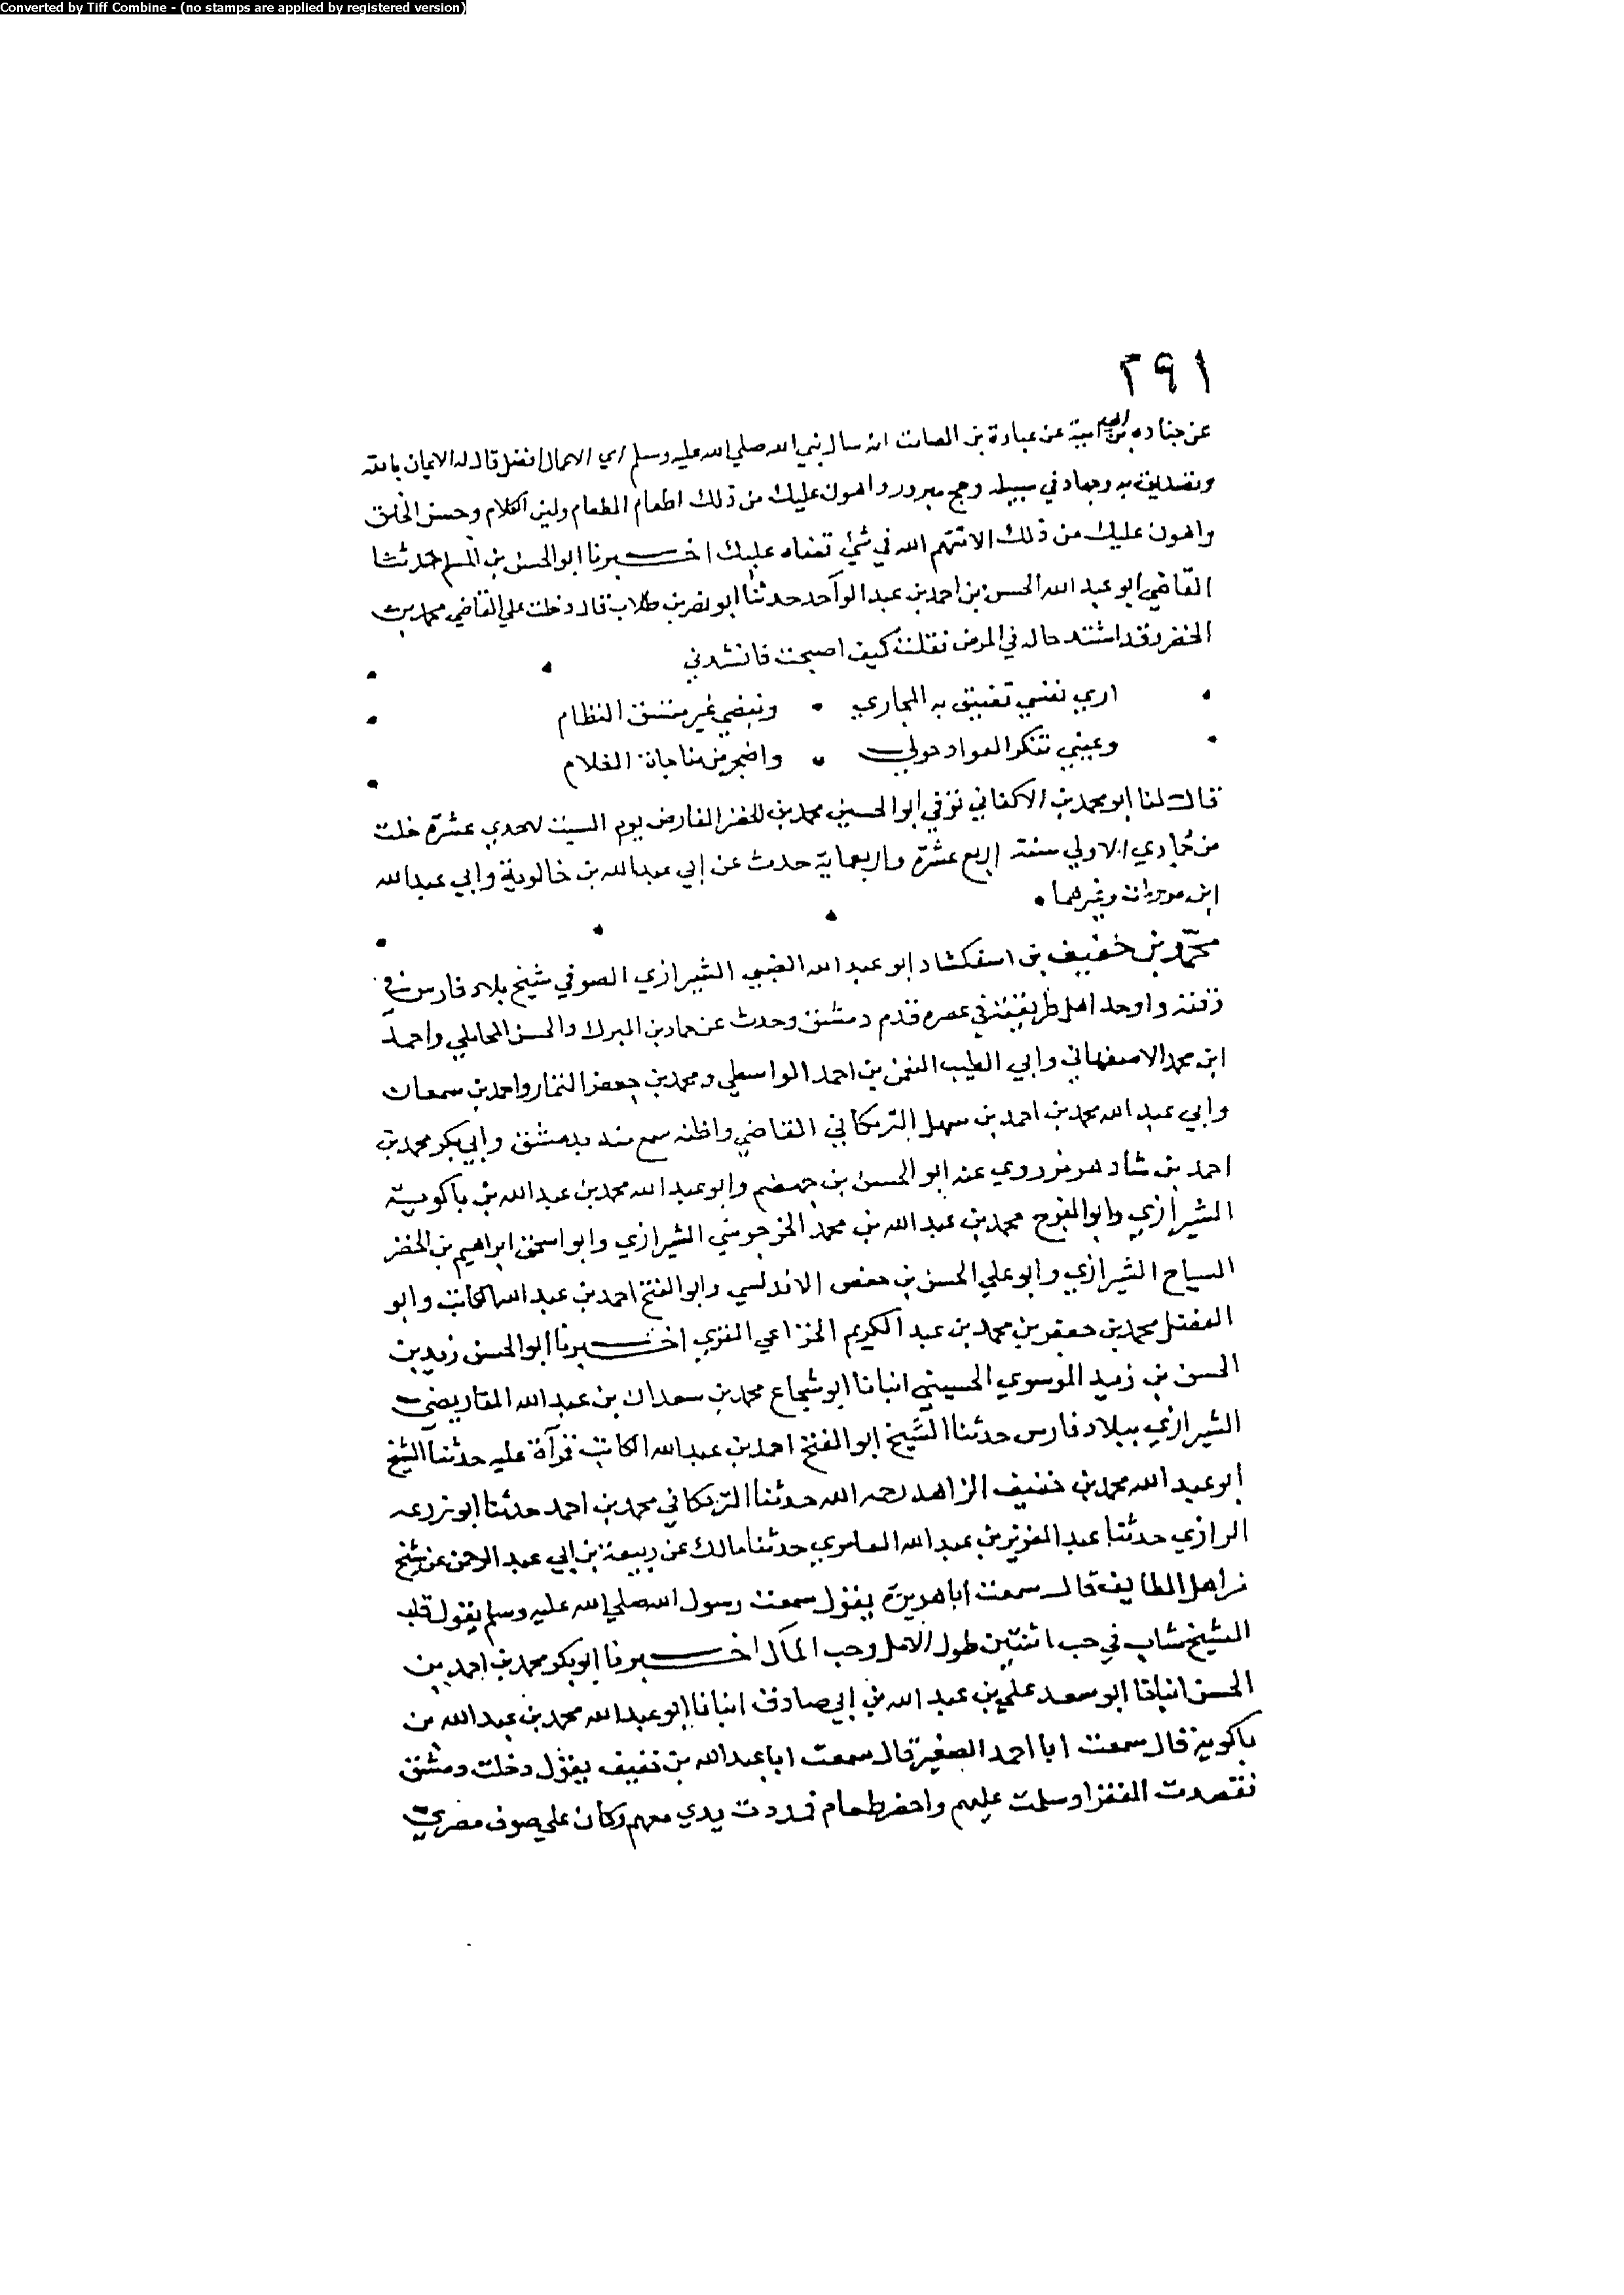 Converted by Tiff Combine - (no stamps are applied by registered version)
٢٩١
عن جناده بن ابي امية عن عبادة بن الصامت انه سال نبي الله صلي الله عليه وسلم اي الاعمال افضل قال له الايمان بالله
وتصديق به وجهاد في سبيله وحج مبرور واهون عليك من ذلك اطعام الطعام ولين الكلام وحسن الخلق
واهون عليك من ذلك الا تتهم الله في شئ قضاه عليك اخبرنا ابو الحسن بن المسلم حدثنا
القاضي ابو عبد الله الحسن بن احمد بن عبد الواحد حدثنا ابو نصر بن طلاب قال دخلت علي القاضي محمد بن
الخضر وقد اشتد حاله في المرض فقلت كيف اصبحت فانشدني
اري نفسي تضيق به المجاري • ونبضي غير متسق النظام
وعيني تنكر العواد حولي • واضجر من مناجاة الغلام
قال لنا ابو محمد بن الاكفاني توفي ابو الحسين محمد بن الخضر الفارض يوم السبت لاحدي عشرة خلت
من جمادي الاولي سنة اربع عشرة واربعماية حدث عن ابي عبد الله بن خالوية وابي عبد الله
ابن مروان وغيرهما •
محمد بن خفيف بن اسفكشاد ابو عبد الله الضبي الشيرازي الصوفي شيخ بلاد فارس في
وقته واوحد اهل طريقته في عصره قدم دمشق وحدث عن حماد بن المبرك والحسن المحاملي واحمد
ابن محمد الاصفهاني وابي الطيب النعمن بن احمد الواسطي ومحمد بن جعفر التمار واحمد بن سمعان
وابي عبد الله محمد بن احمد بن سهل التركاني القاضي واظنه سمع منه بدمشق وابي بكر محمد بن
احمد بن شاد هرمز روي عنه ابو الحسن بن جهضم وابو عبد الله محمد بن عبد الله بن باكوية
الشيرازي وابو الفرج محمد بن عبد الله بن محمد الخرجوشي الشيرازي وابو اسحق ابراهيم بن الخضر
السياح الشيرازي وابو علي الحسن بن حفص الاندلسي وابو الفتح احمد بن عبد الله الكاتب وابو
الفضل محمد بن جعفر بن محمد بن عبد الكريم الخزاعي المقري اخبرنا ابو الحسن زيد بن
الحسن بن زيد الموسوي الحسيني انبانا ابو شجاع محمد بن سعدان بن عبد الله المقاريضي
الشيرازي ببلاد فارس حدثنا الشيخ ابو الفتح احمد بن عبد الله الكاتب قرآة عليه حدثنا الشيخ
ابو عبد الله محمد بن خفيف الزاهد رحمه الله حدثنا التركاني محمد بن احمد حدثنا ابو زرعه
الرازي حدثنا عبد العزيز بن عبد الله العامري حدثنا مالك عن ربيعة بن ابي عبد الرحمن عن شيخ
من اهل الطايف قال سمعت ابا هريرة يقول سمعت رسول الله صلي الله عليه وسلم يقول قلب
الشيخ شاب في حب اثنتين طول الامل وحب المال اخبرنا ابو بكر محمد بن احمد بن
الحسن انبانا ابو سعد علي بن عبد الله بن ابي صادق انبانا ابو عبد الله محمد بن عبد الله بن
باكوية قال سمعت ابا احمد الصغير قال سمعت ابا عبد الله بن خفيف يقول دخلت دمشق
فقصدت الفقرا وسلمت عليهم واحضر طعام فمددت يدي معهم وكان علي صوف مصري